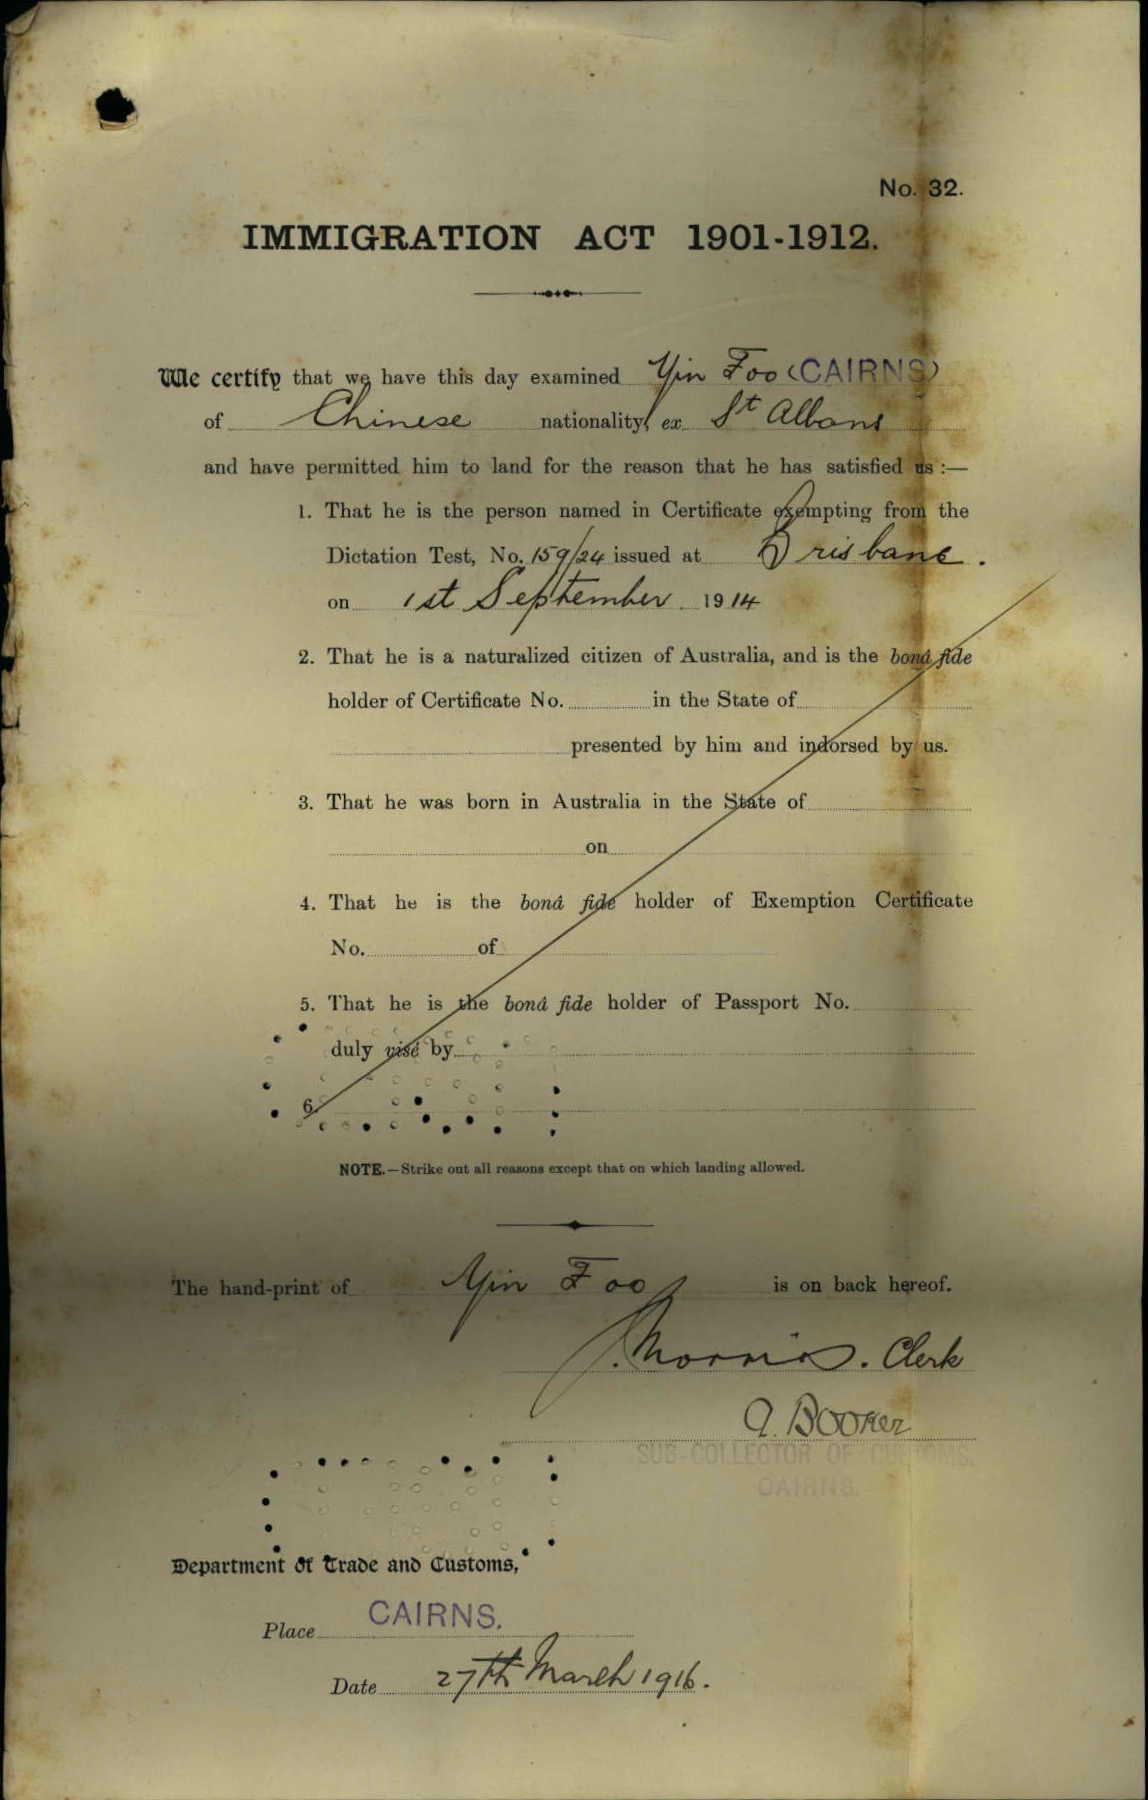 No. 32.
IMMIGRATION ACT 1901-1912.
We certify that we have this day examined Yin Foo (CAIRNS)
of Chinese nationality, ex St Albans
and have permitted him to land for the reason that he has satisfied us :—
1. That he is the person named in Certificate exempting from the
Dictation Test, No. 159/24 issued at Brisbane.
on 1st September 1914
2. That he is a naturalized citizen of Australia, and is the bonâ fide
holder of Certificate No. in the State of
presented by him and indorsed by us.
3. That he was born in Australia in the State of
on
4. That he is the bonâ fide holder of Exemption Certificate
No. of
5. That he is the bonâ fide holder of Passport No.
duly visé by
6.
NOTE.—Strike out all reasons except that on which landing allowed.
The hand-print of Yin Foo is on back hereof.
J. Morris. Clerk
A. Booker
SUB-COLLECTOR OF CUSTOMS.
CAIRNS.
Department of Trade and Customs,
Place CAIRNS.
Date 27th March 1916.